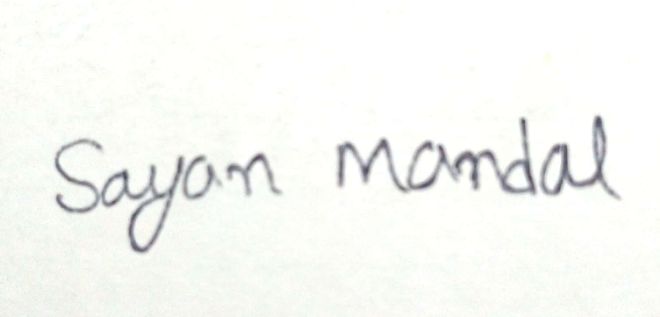 Sayan Mandal